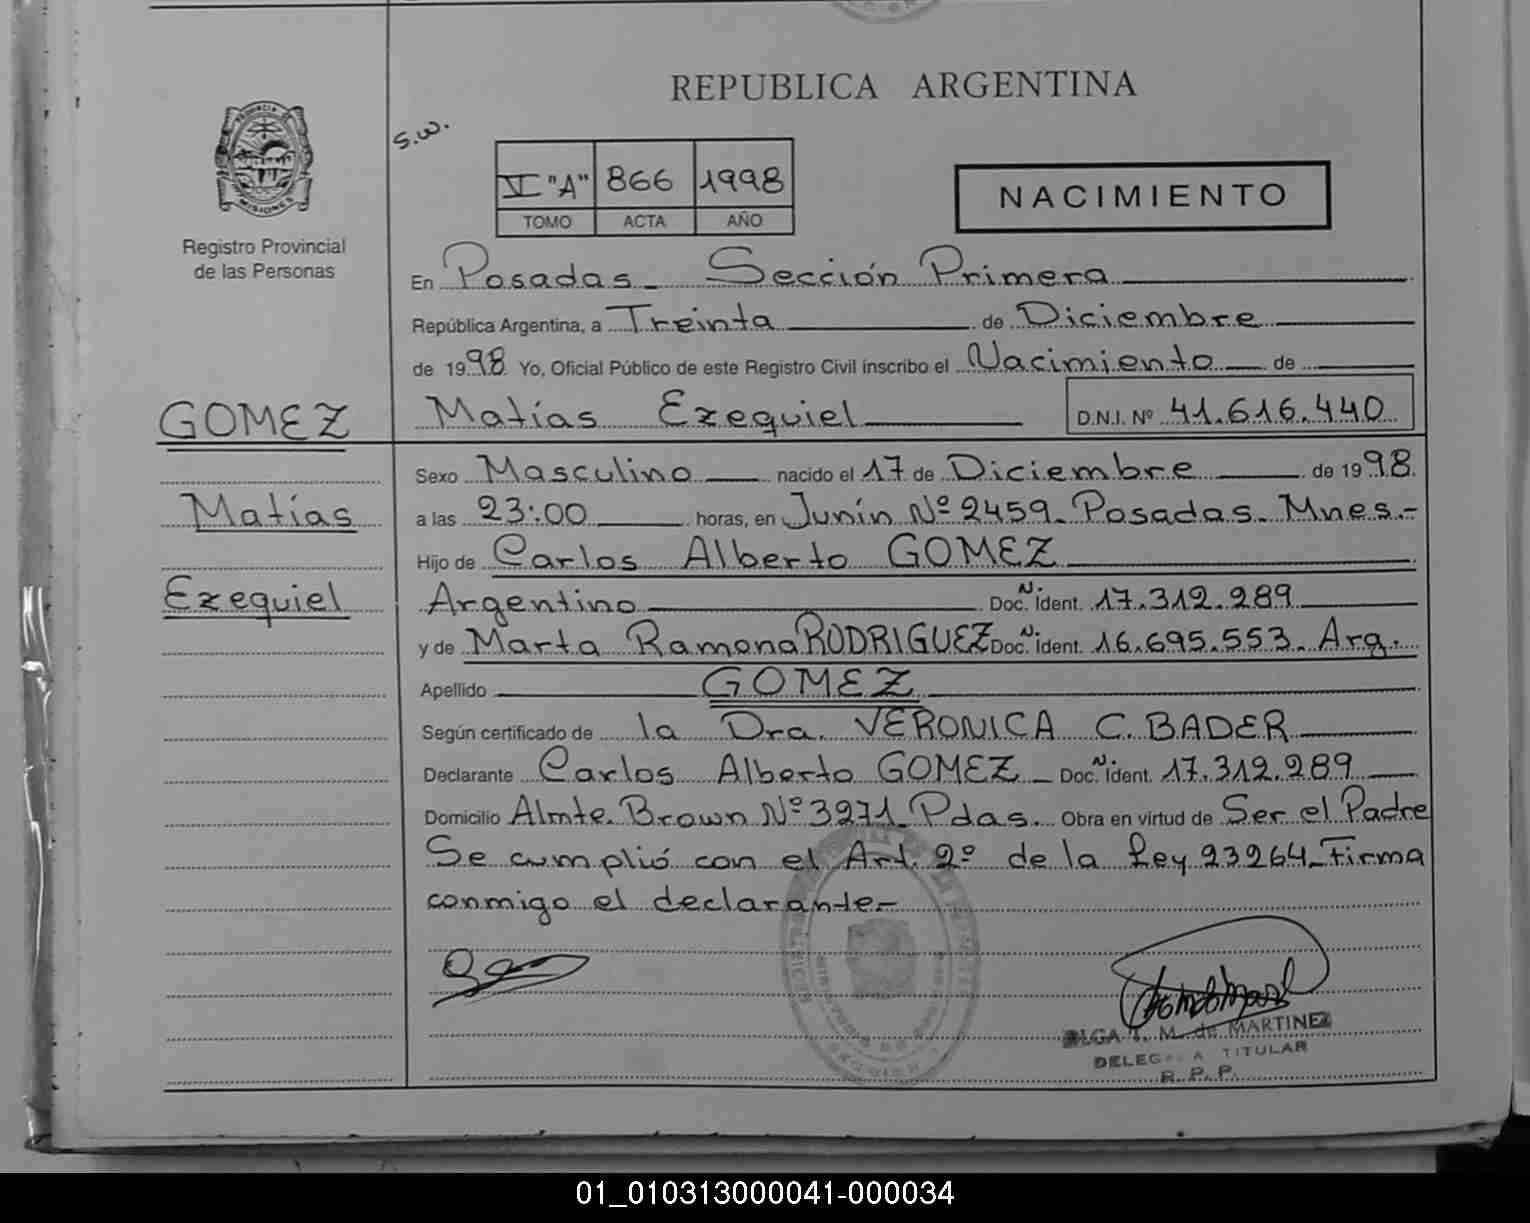 REPUBLICA ARGENTINA
PROVINCIA DE
MISIONES
Registro Provincial
de las Personas
S.W.
VI "A" 866 1998
TOMO ACTA AÑO
NACIMIENTO
En Posadas_ Sección Primera
República Argentina, a Treinta de Diciembre
de 1998 Yo, Oficial Público de este Registro Civil inscribo el Nacimiento de
GOMEZ Matías Ezequiel D.N.I. Nº 41.616.440
Sexo Masculino nacido el 17 de Diciembre de 1998.
Matías a las 23:00 horas, en Junín Nº 2459_ Posadas_ Mnes.-
Hijo de Carlos Alberto GOMEZ
Ezequiel Argentino Doc. N. ident. 17.312.289
y de Marta Ramona RODRIGUEZ Doc. N. ident. 16.695.553_ Arg.
Apellido GOMEZ
Según certificado de la Dra. VERONICA C. BADER
Declarante Carlos Alberto GOMEZ _ Doc. N. ident. 17.312.289
Domicilio Almte. Brown Nº 3271_ Pdas. Obra en virtud de Ser el Padre
Se cumplió con el Art. 2º de la Ley 23264_ Firma
conmigo el declarante_
OLGA M. de MARTINEZ
DELEGADA TITULAR
R. P. P.
01_010313000041-000034